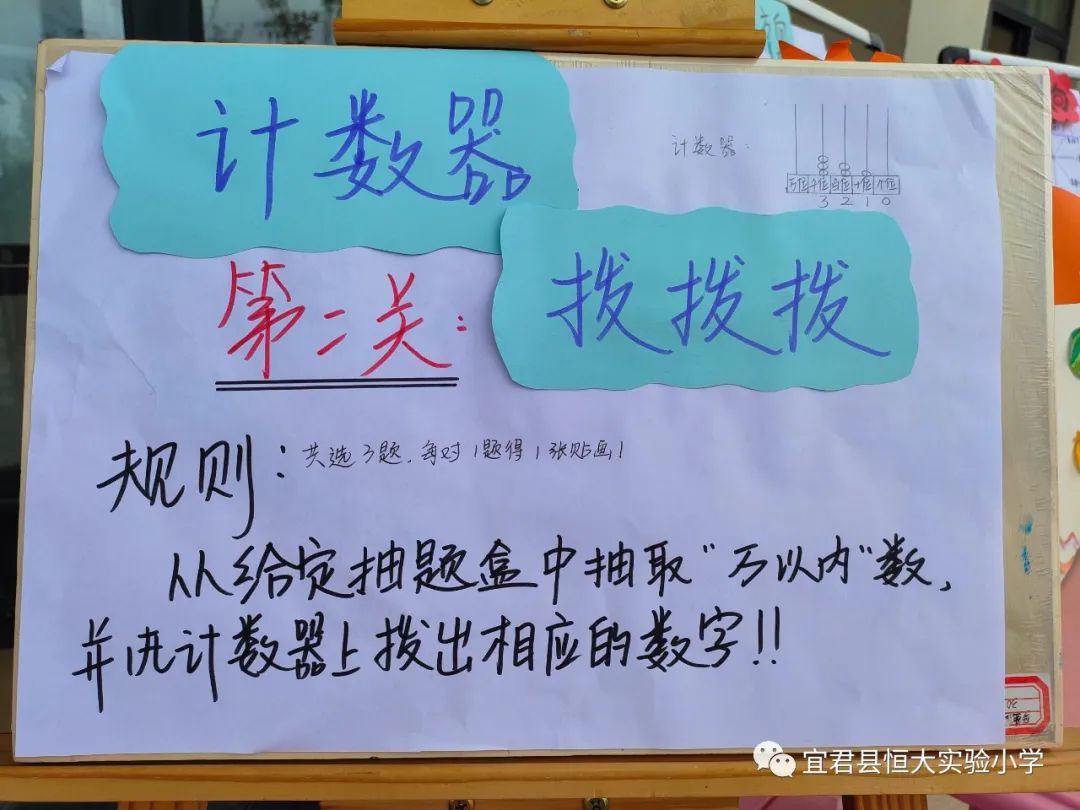 计数器
计数器:
万位 千位 百位 十位 个位
3 2 1 0
第二关:
拨拨拨
规则:
共选3题.每对1题得1张贴画!
从给定抽题盒中抽取"万以内"数,
并决计数器上拨出相应的数字!!
宜君县恒大实验小学